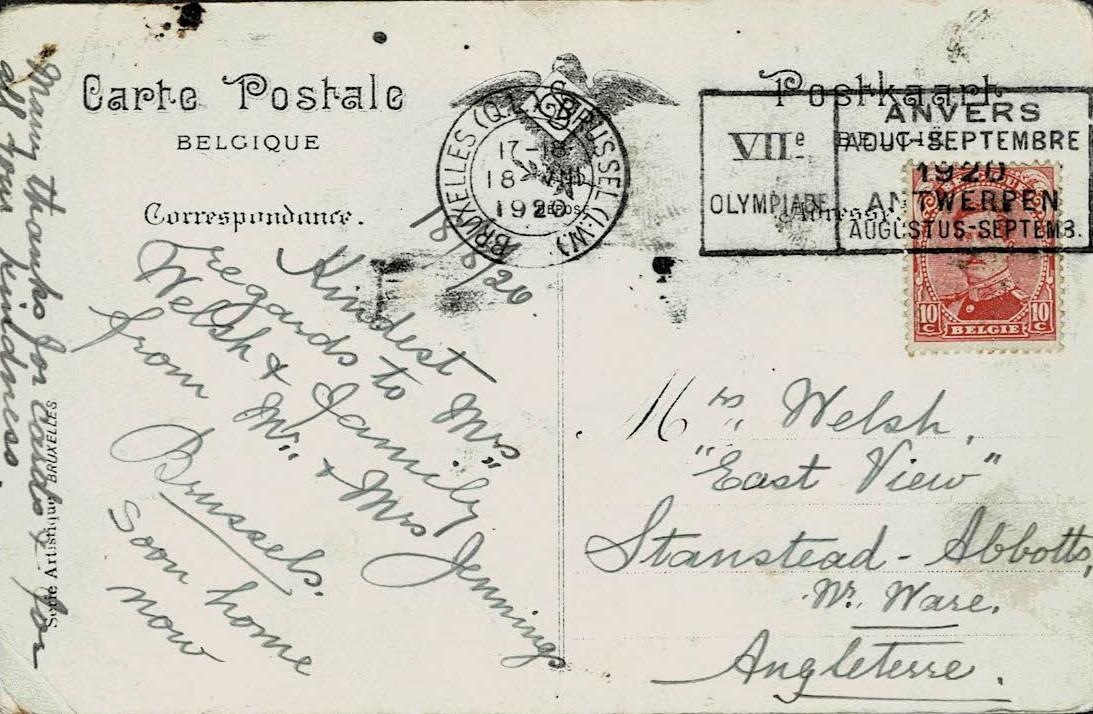 Carte Postale
BELGIQUE
Correspondance.
Postkaart
BRUXELLES (Q.L.) BRUSSEL (L.W)
17-18
18
1920
VIIe
OLYMPIADE
ANVERS
AOUT-SEPTEMBRE
1920
ANTWERPEN
AUGUSTUS-SEPTEMB.
10 C BELGIE 10 C
/8/20
Kindest
regards to Mrs
Welsh & Family
from Mr. & Mrs Jennings
Brussels.
Soon home
now
Many thanks for cards & for
all your kindness.
Série Artistique BRUXELLES.
Mrs Welsh,
"East View"
Stanstead - Abbotts,
Nr. Ware.
Angleterre.